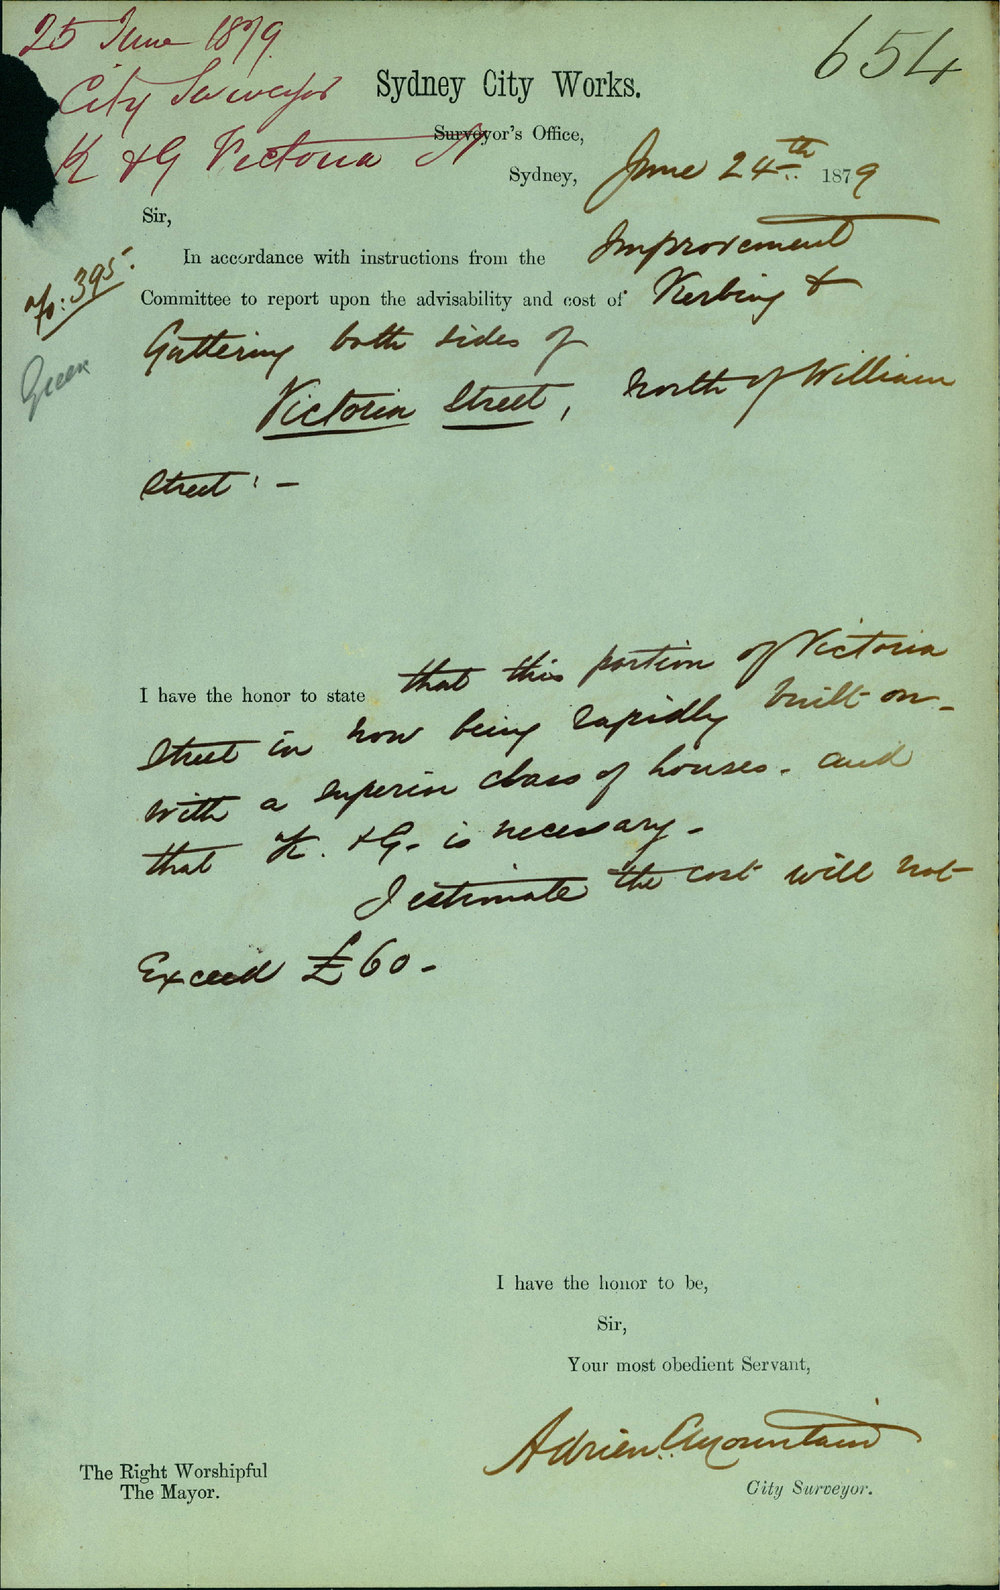 25 June 1879
City Surveyor
K & G Victoria St
654
Sydney City Works.
Surveyor's Office,
Sydney, June 24th 1879
Sir,
In accordance with instructions from the Improvement
Committee to report upon the advisability and cost of Kerbing &
Guttering both sides of
Victoria Street, North of William
Street: -
395.
Green
I have the honor to state that this portion of Victoria
Street is now being rapidly built on -
with a superior class of houses - and
that K. & G. is necessary -
I estimate the cost will not
Exceed £60 -
I have the honor to be,
Sir,
Your most obedient Servant,
Adrien C Mountain
City Surveyor.
The Right Worshipful
The Mayor.